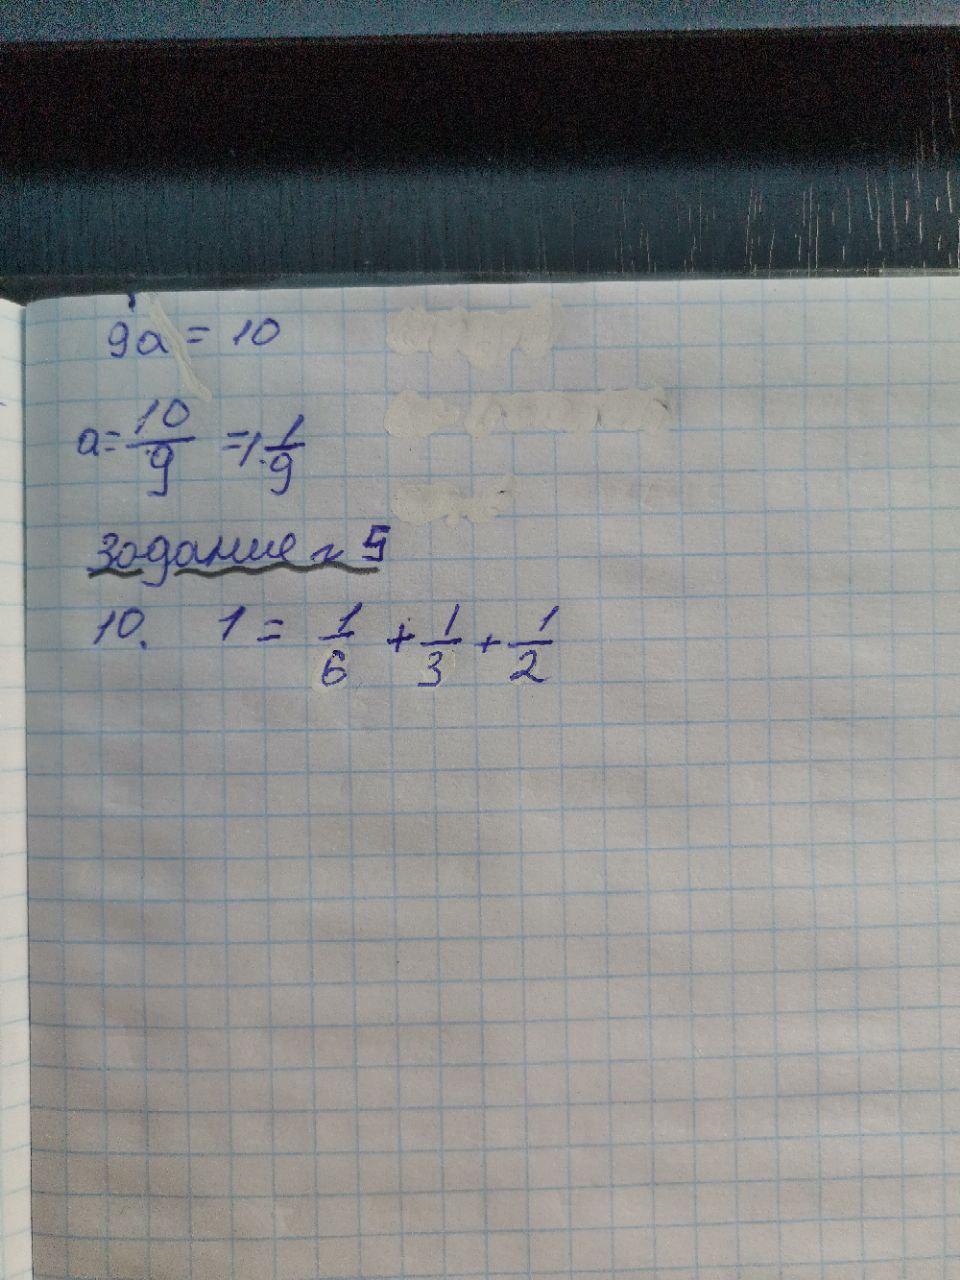 9a = 10
a = 10/9 = 1 1/9
Задание № 5
10. 1 = 1/6 + 1/3 + 1/2